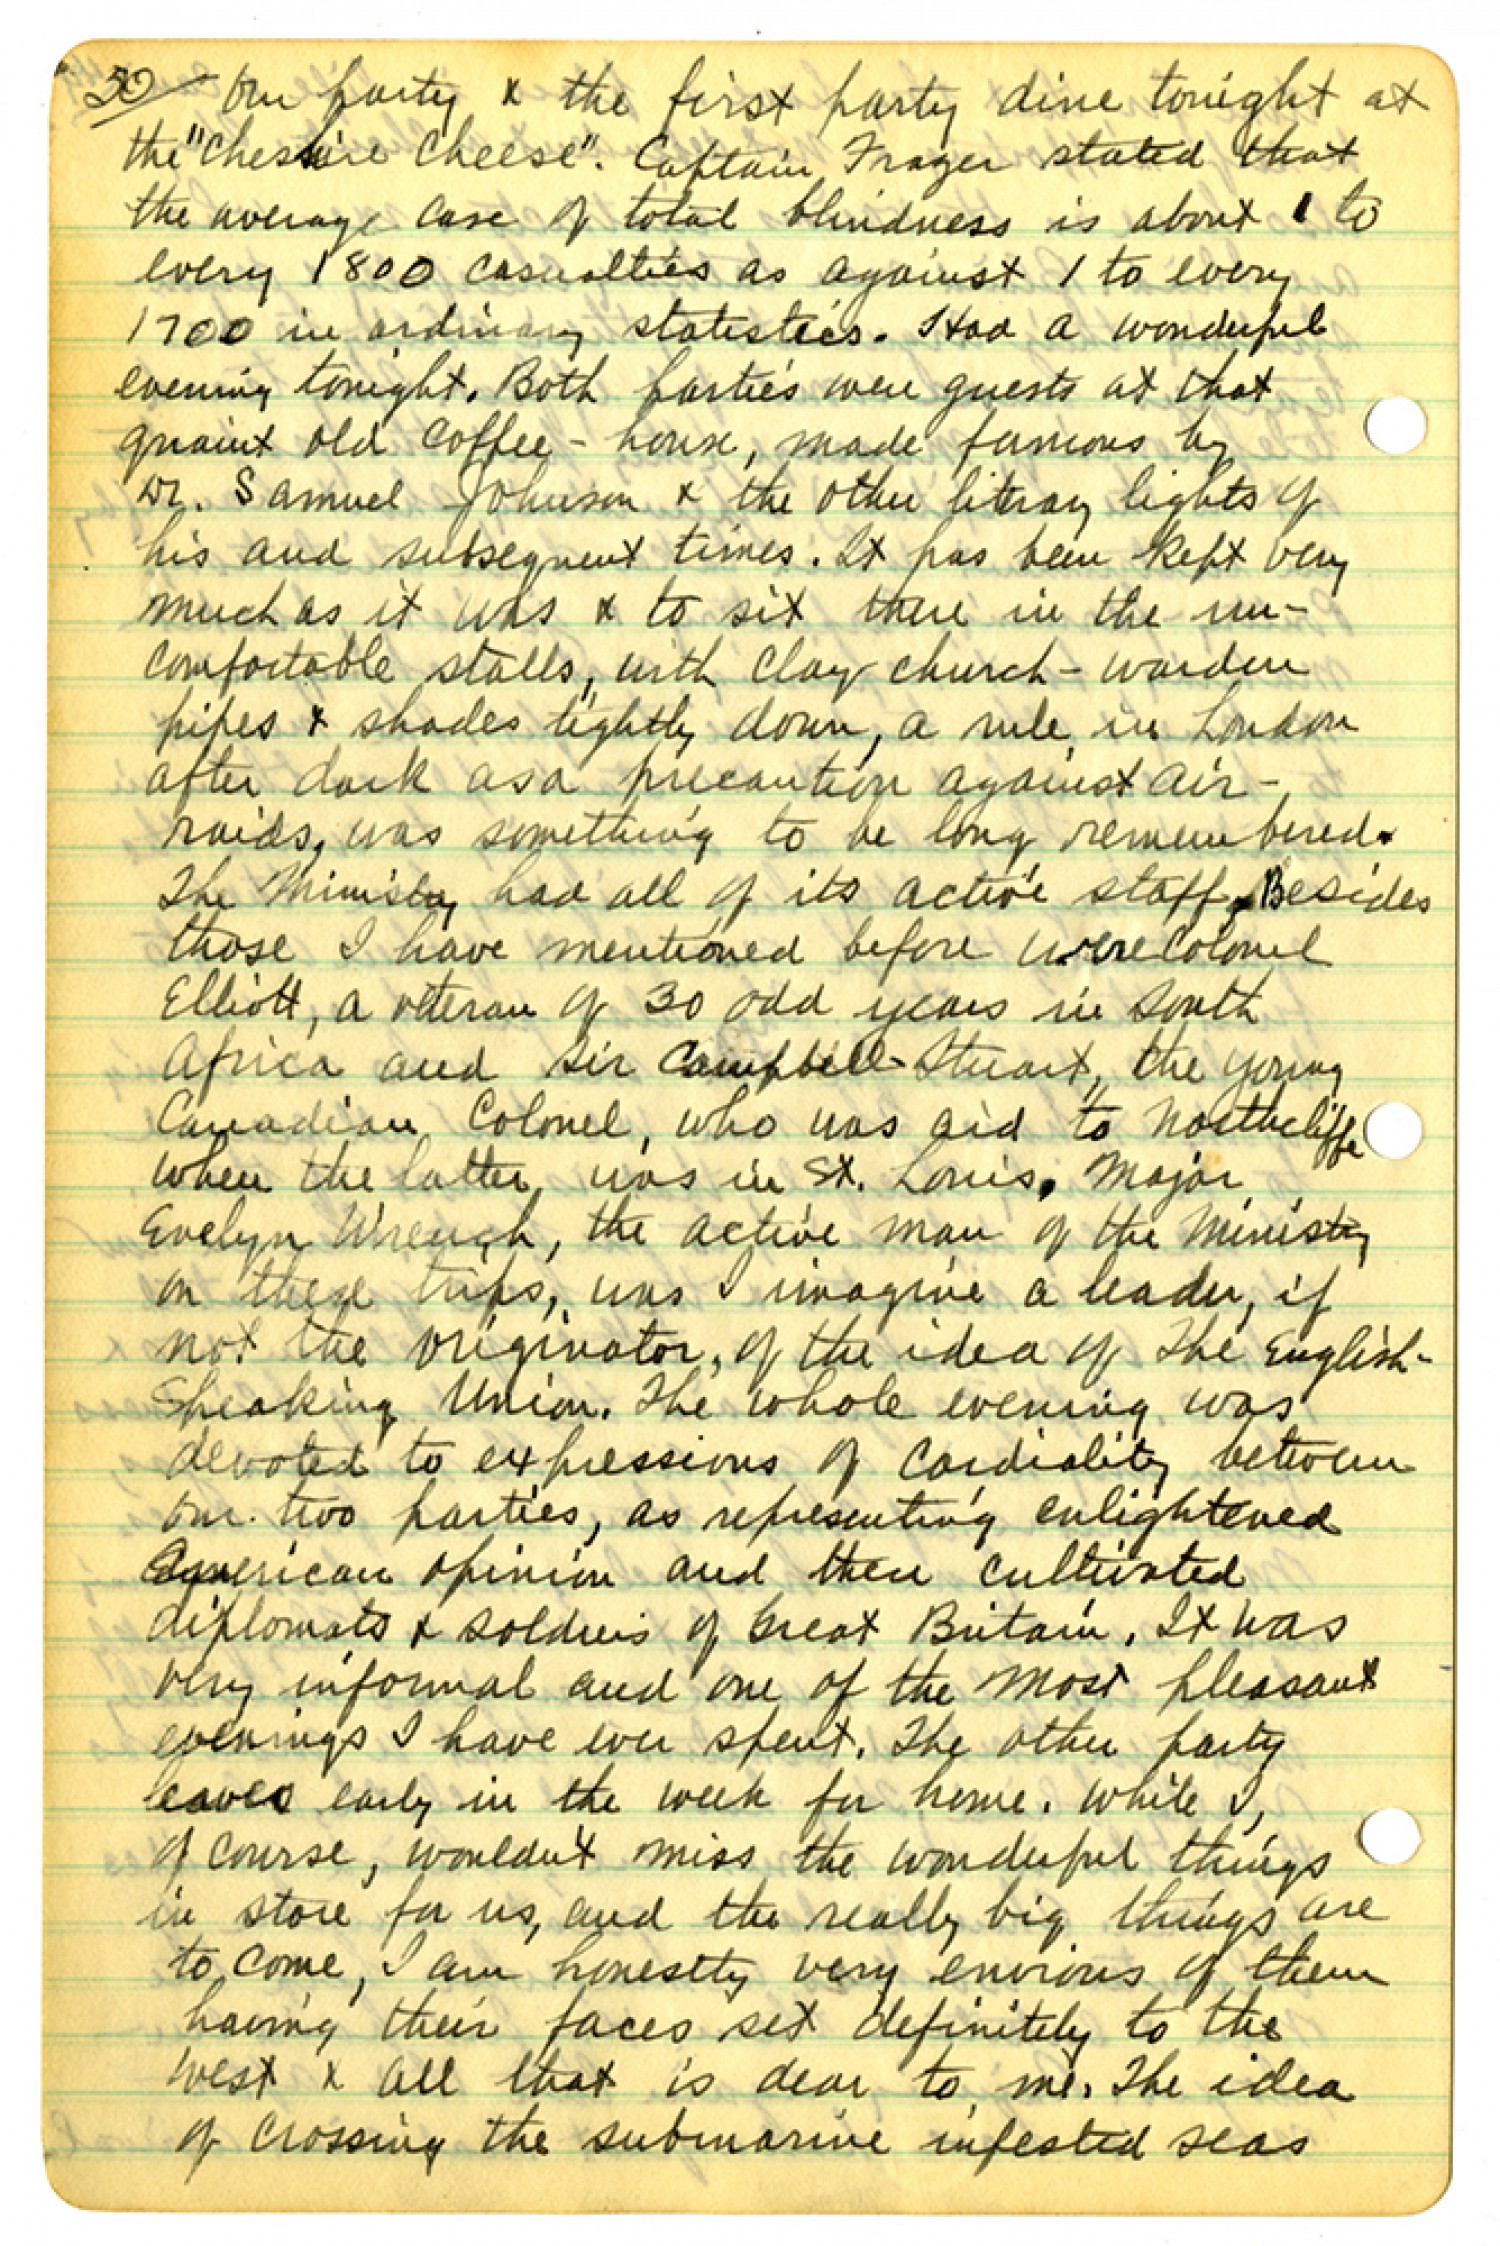 50/ Our party & the first party dine tonight at
the "Cheshire Cheese". Captain Frazer stated that
the average case of total blindness is about 1 to
every 1800 casualties as against 1 to every
1700 in ordinary statistics. Had a wonderful
evening tonight. Both parties were guests at that
quaint old coffee-house, made famous by
Dr. Samuel Johnson & the other literary lights of
his and subsequent times. It has been kept very
much as it was & to sit there in the un-
comfortable stalls, with clay church-warden
pipes & shades tightly down, a rule in London
after dark as a precaution against air-
raids, was something to be long remembered.
The Ministry had all of its active staff. Besides
those I have mentioned before were Colonel
Elliott, a veteran of 30 odd years in South
Africa and Sir Campbell Stuart, the young
Canadian Colonel, who was aid to Northcliffe
when the latter was in St. Louis. Major
Evelyn Wrench, the active man of the Ministry
on these trips, was I imagine a leader, if
not the originator, of the idea of The English-
Speaking Union. The whole evening was
devoted to expressions of cordiality between
our two parties, as representing enlightened
American opinion and then cultivated
diplomats & soldiers of Great Britain. It was
very informal and one of the most pleasant
evenings I have ever spent. The other party
leaves early in the week for home. While I,
of course, wouldn't miss the wonderful things
in store for us, and the really big things are
to come, I am honestly very envious of them
having their faces set definitely to the
west & all that is dear to me. The idea
of crossing the submarine infested seas